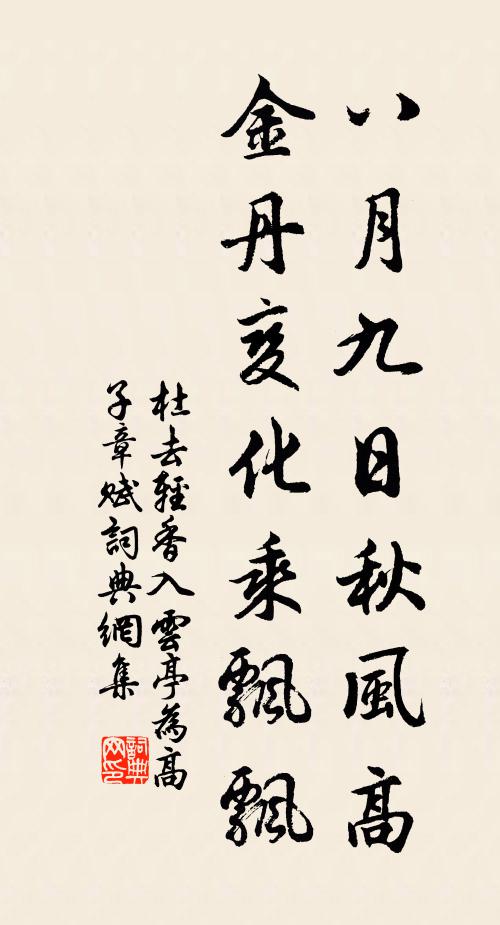 八月九日秋風高
金丹变化乘飄飄
杜去輕香入雲亭為高
子章賦詞典網集
詞典网印